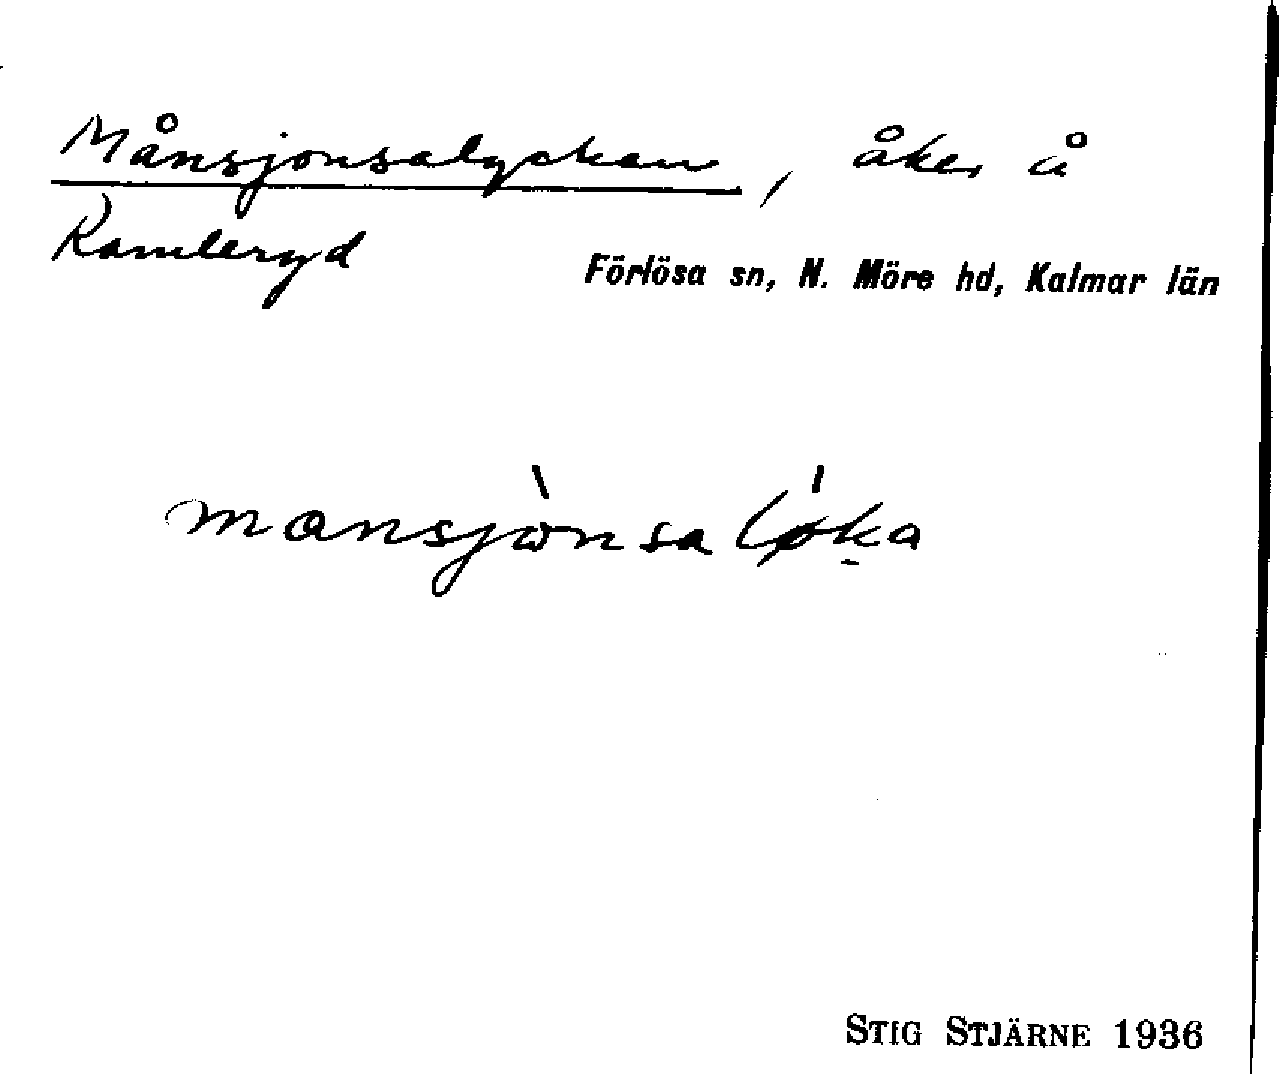 Månsjonsalyckan, åker å
Ramleryd
Förlösa sn, N. Möre hd, Kalmar län
mansjònsa løka
STIG STJÄRNE 1936